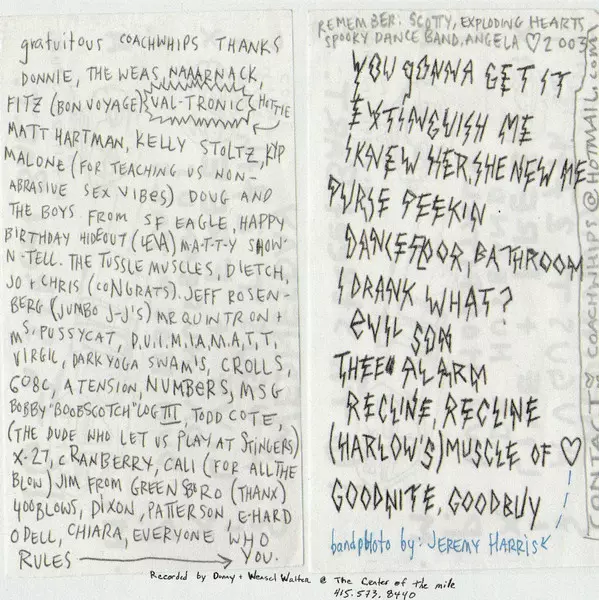 gratuitous COACHWHIPS THANKS
DONNIE, THE WEAS, NAAARNACK,
FITZ (BON VOYAGE) VAL-TRONIC HOTTIE
MATT HARTMAN, KELLY STOLTZ, KIP
MALONE (FOR TEACHING US NON-
ABRASIVE SEX VIBES) DOUG AND
THE BOYS FROM SF EAGLE, HAPPY
BIRTHDAY HIDEOUT (LEVA) MATTY SHOW-
N-TELL. THE TUSSLE MUSCLES, DIETCH,
JO + CHRIS (CONGRATS). JEFF ROSEN-
BERG (JUMBO J-J'S) MR QUINTRON +
MS. PUSSYCAT, D.U.I. M.I.A.M.A.T.T.
VIRGIL, DARK YOGA SWAMIS, CROLLS,
GOBC, A TENSION, NUMBERS, MSG
BOBBY "BOOBSCOTCH" LOG III, TODD COTE,
(THE DUDE WHO LET US PLAY AT STINGERS)
X-27, CRANBERRY, CALI (FOR ALL THE
BLOW) JIM FROM GREENSBORO (THANX)
400BLOWS, DIXON, PATTERSON, E-HARD
ODELL, CHIARA, EVERYONE WHO
RULES → YOU.
REMEMBER: SCOTTY, EXPLODING HEARTS,
SPOOKY DANCE BAND, ANGELA ♡ 2003
YOU gONNA GET IT
EXTINGUISH ME
I KNEW HER, SHE NEW ME
PURSE PEEKIN
DANCEFLOOR, BATHROOM
I DRANK WHAT?
EVIL SON
THEE ALARM
RECLINE, RECLINE
(HARLOW'S) MUSCLE OF ♡
GOODNITE, GOODBUY
bandphoto by: JEREMY HARRIS
CONTACT COACHWHIPS @ HOTMAIL.COM
Recorded by Donny + Weasel Walter @ The Center of the mile
415.573.8440